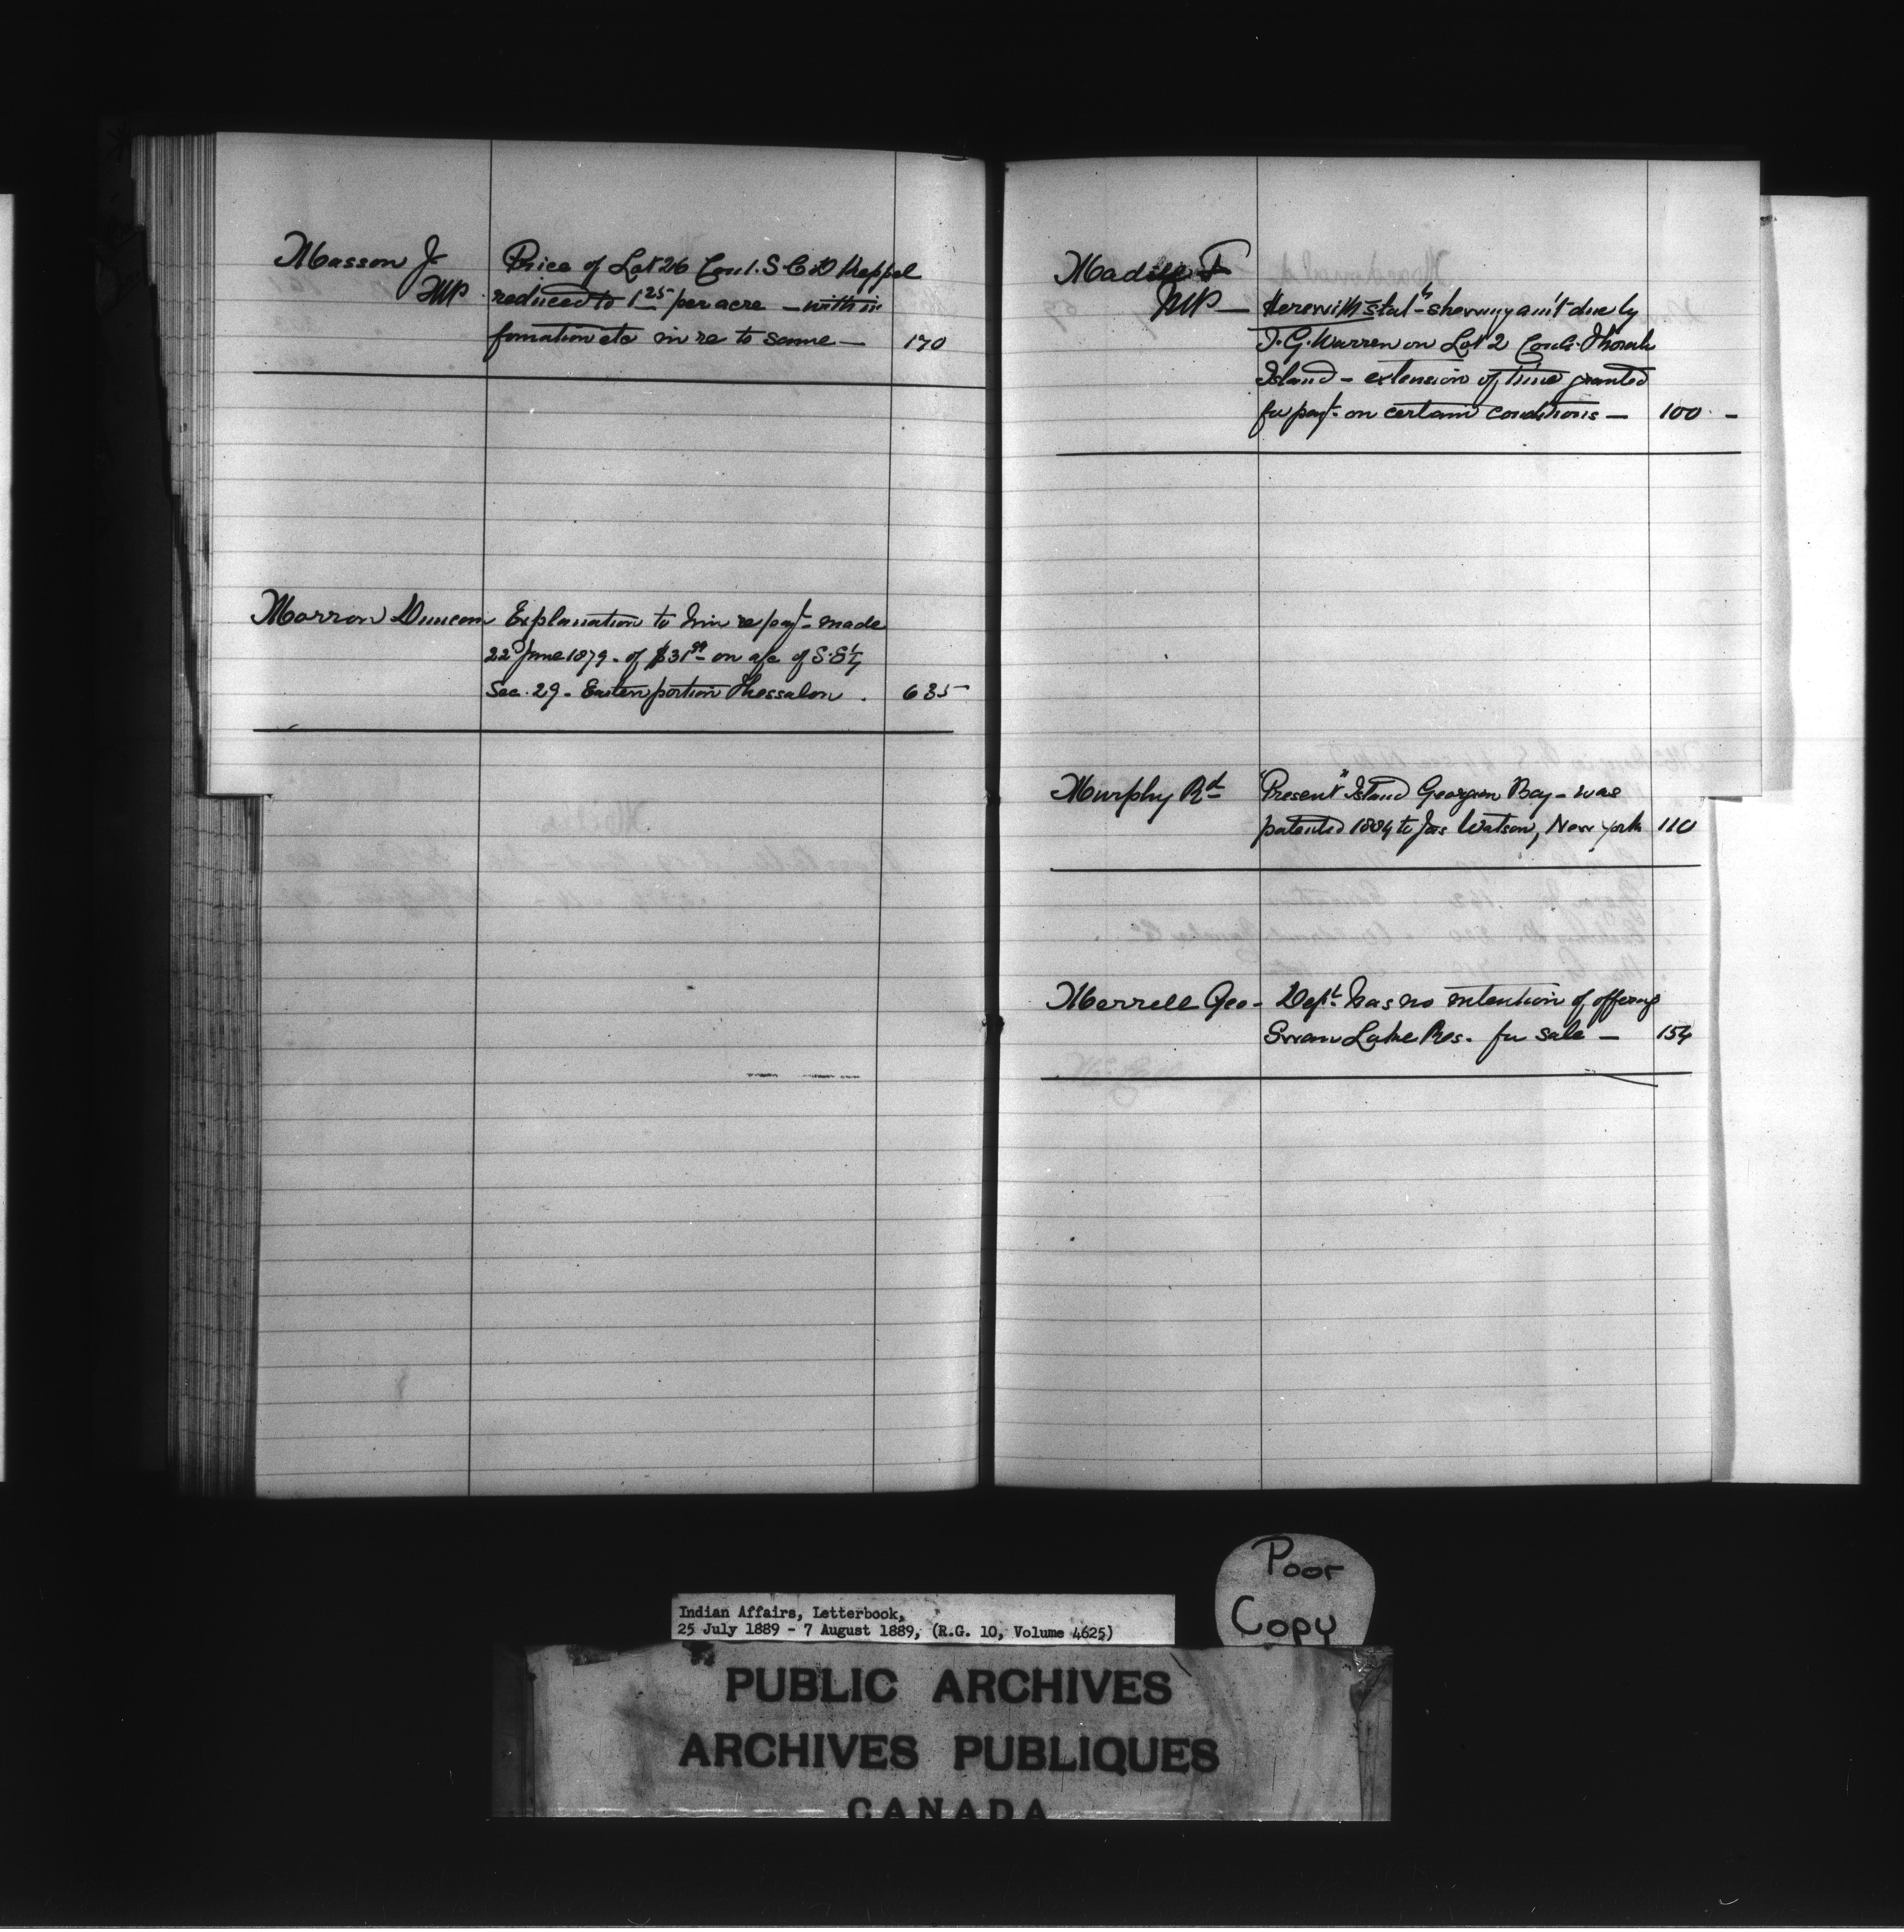 Masson J.
MP
Price of Lot 26 Con 1. S.C.D Keppel
reduced to 1 25 per acre — with in
formation etc in re to same — 170
Morron Duncan Explanation to him re payt. made
22d June 1879. of $31 on a/c of S.E¼
Sec. 29. Eastern portion Thessalon. 635
Madill F
MP —
Herewith statt. shewing am't due by
T. G. Warren on Lot 2 Thorah
Island — extension of time granted
for payt. on certain conditions — 100 —
Murphy Rd "Present" Island Georgian Bay — was
patented 1884 to Jas Watson, New York 110
Merrell Geo — Dept. has no intention of offering
Swan Lake Res. for sale — 154
Poor
Copy
Indian Affairs, Letterbook,
25 July 1889 - 7 August 1889, (R.G. 10, Volume 4625)
PUBLIC ARCHIVES
ARCHIVES PUBLIQUES
CANADA